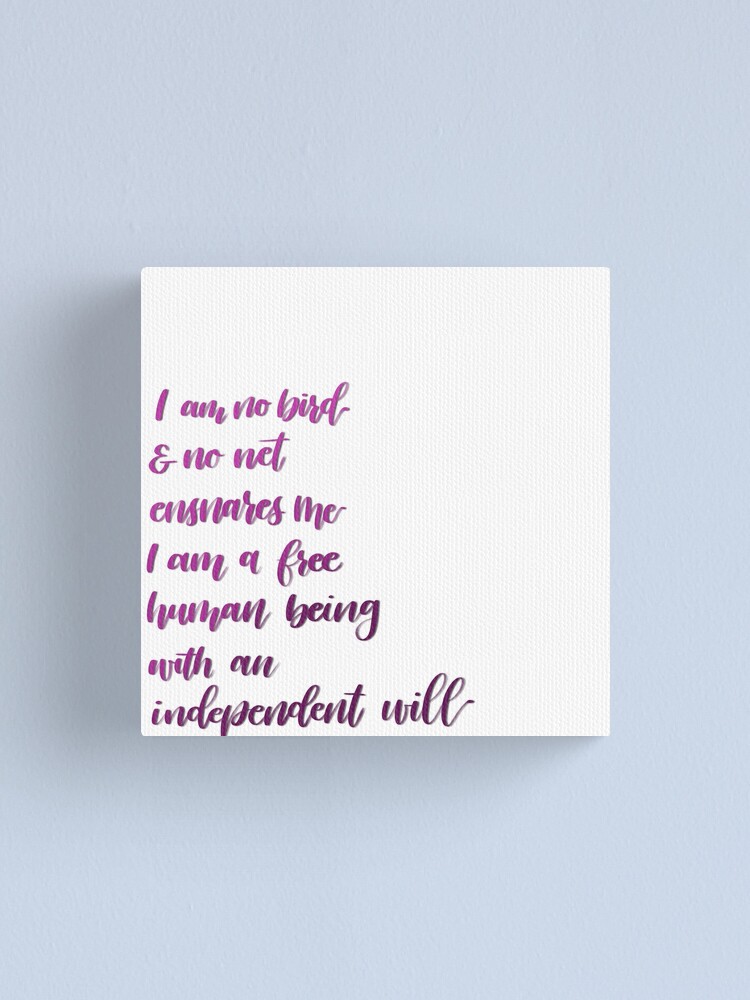 I am no bird
& no net
ensnares me
I am a free
human being
with an
independent will